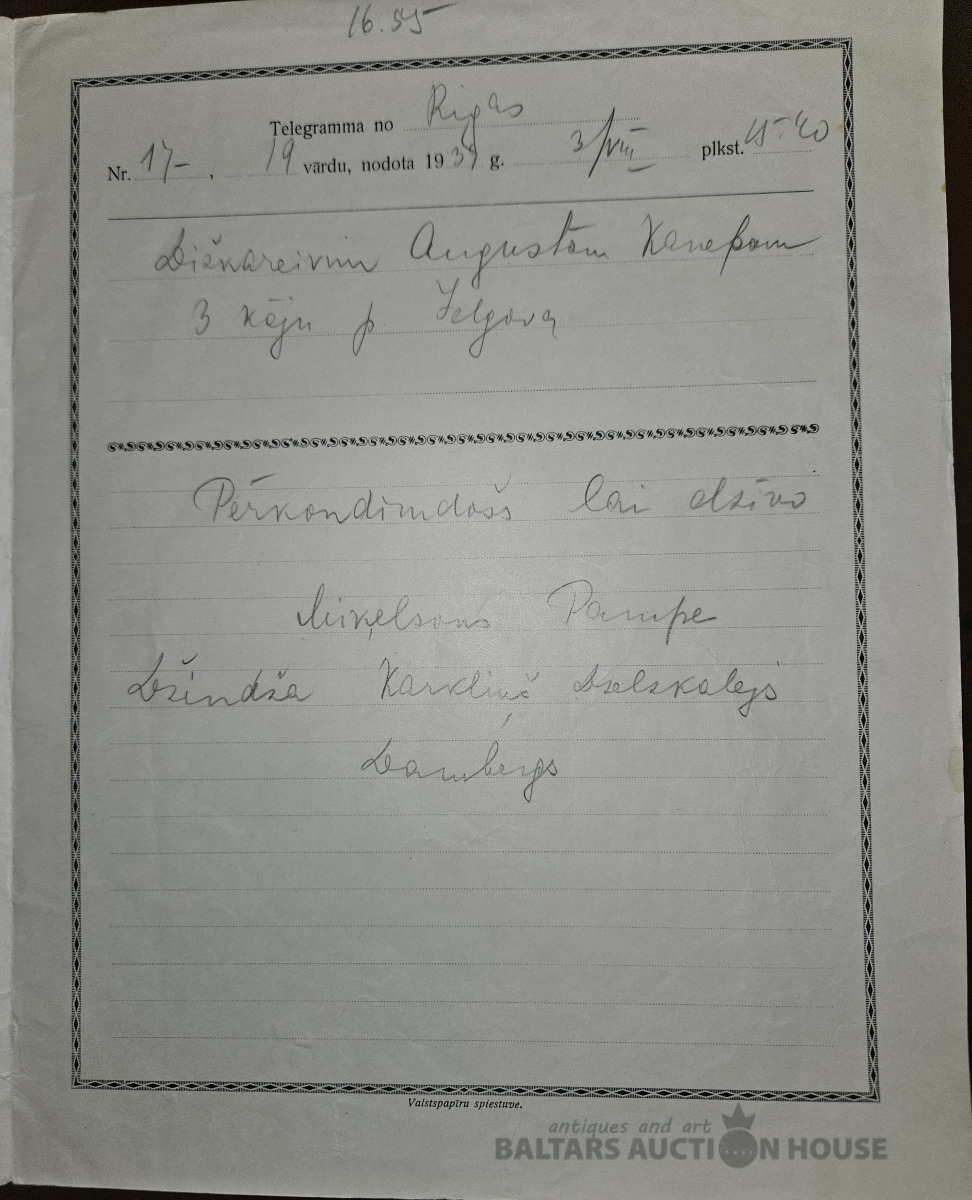 16.55
Telegramma no Rigas
Nr. 17–, 19 vārdu, nodota 1939 g. 3/VIII plkst. 15.40
Dižkareivim Augustam Kanepam
3 kāju p. Jelgavā
Pērkondimdošs lai dzīvo
Miķelsons Pampe
Džindža Karkliņš Dzelzkalejs
Dambergs
Valstspapīru spiestuve.
antiques and art
BALTARS AUCTION HOUSE